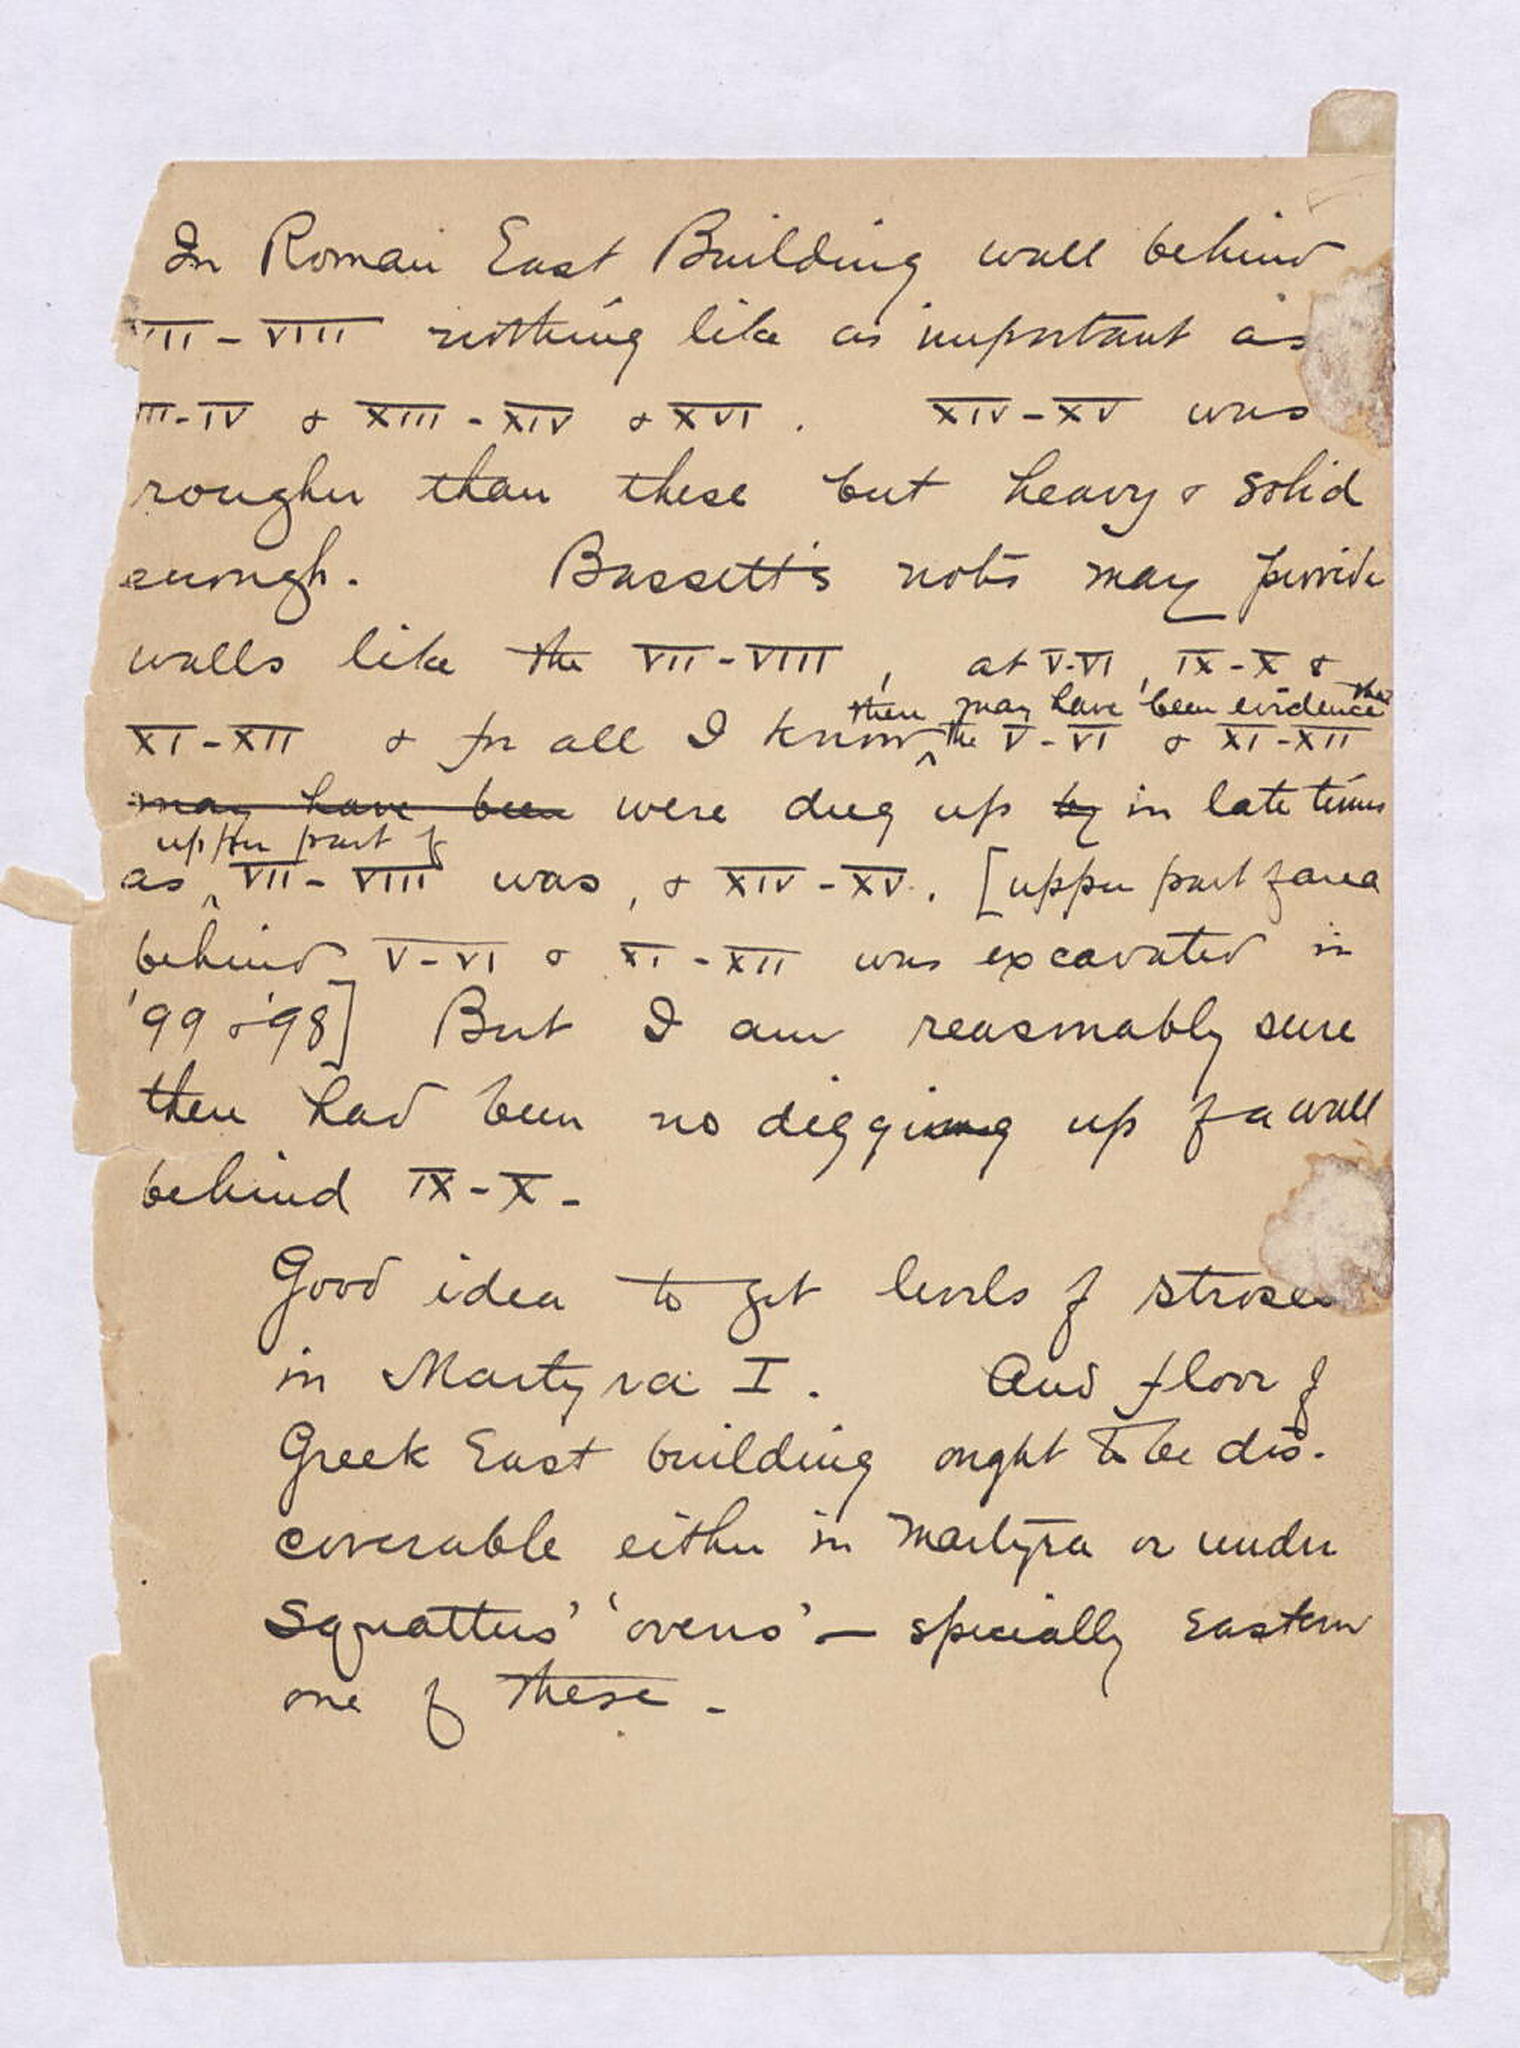 In Roman East Building wall behind
VII-VIII nothing like as important as
III-IV & XIII-XIV & XVI. XIV-XV was
rougher than these but heavy & solid
enough. Bassett's notes may provide
walls like the VII-VIII, at V-VI, IX-X &
there may have been evidence that
XI-XII & for all I know the V-VI & XI-XII
may have been were dug up by in late times
upper part of
as VII-VIII was, & XIV-XV. [upper part of area
behind V-VI & XI-XII was excavated in
'99 & '98] But I am reasonably sure
there had been no digging up of a wall
behind IX-X-
Good idea to get levels of stroses
in Martyra I. And floor of
Greek East building ought to be dis-
coverable either in Martyra or under
Squatters' 'ovens' - specially Eastern
one of these -